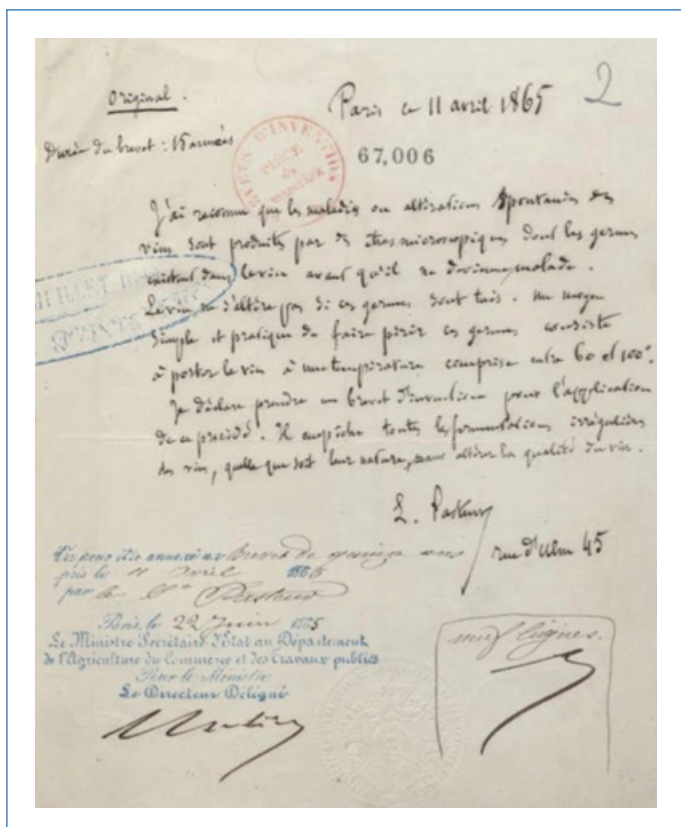 Original.
Paris ce 11 avril 1865
2
Durée du brevet : 15 années
BREVETS D'INVENTION
67,006
J'ai reconnu que les maladies ou altérations spontanées des
vins sont produites par des êtres microscopiques dont les germes
existent dans le vin avant qu'il ne devienne malade.
Le vin ne s'altère pas si ces germes sont tués. Un moyen
simple et pratique de faire périr ces germes consiste
à porter le vin à une température comprise entre 60 et 100°.
Je déclare prendre un brevet d'invention pour l'application
de ce procédé. Il empêche toutes les fermentations irrégulières
des vins, quelle que soit leur nature, sans altérer la qualité du vin.
L. Pasteur
rue d'Ulm 45
Vu pour être annexé au Brevet de quinze ans
pris le 11 Avril 1865
par le Sr Pasteur
Paris, le 22 Juin 1865
Le Ministre Secrétaire d'État au Département
de l'Agriculture du Commerce et des Travaux publics
Pour le Ministre
Le Directeur Délégué
neuf lignes.